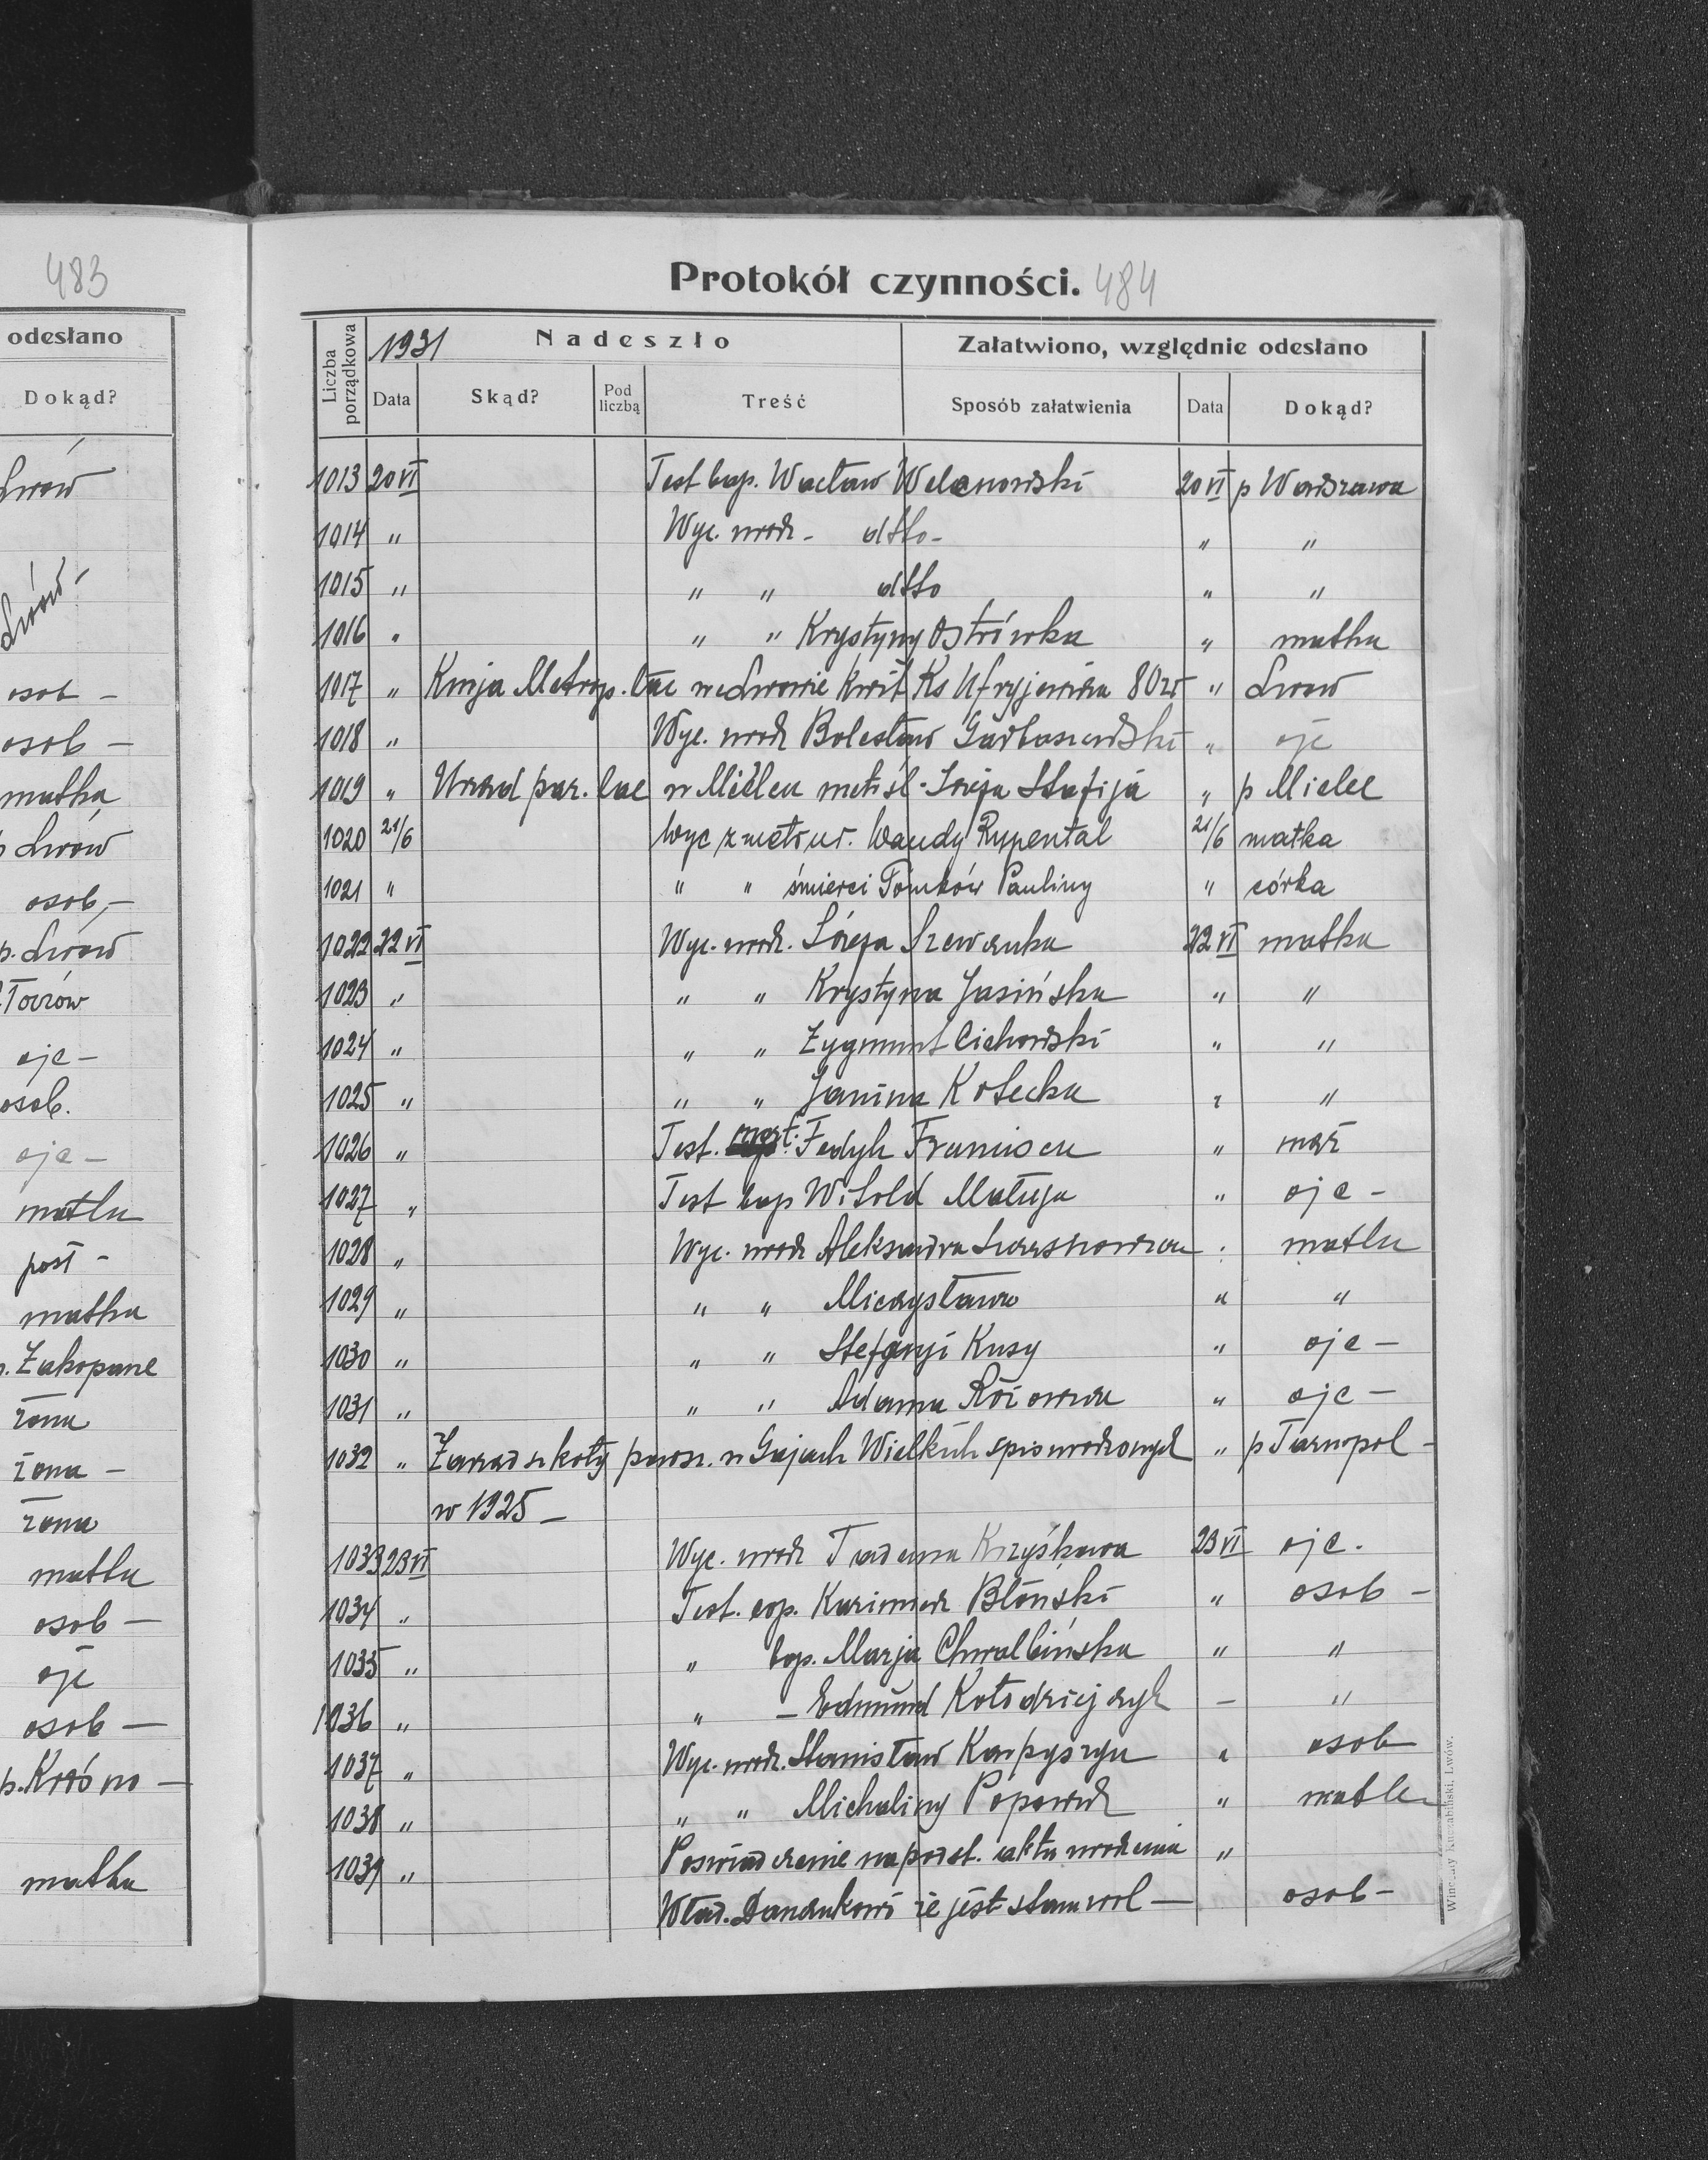 483
odesłano
Dokąd?
Lwów
Lwów
osob -
osob -
matka
p Lwów
osob, -
p. Lwów
ojc -
osob.
ojc -
matka
post -
matka
p. Zakopane
żona
żona -
żona
matka
osob -
ojc
osob -
p. Krosno -
matka
Protokół czynności. 484
Liczba porządkowa
1931 Nadeszło
Załatwiono, względnie odesłano
Data Skąd? Pod liczbą Treść Sposób załatwienia Data Dokąd?
1013 20 VI Test bap. Wacław Welanowski 20 VI p Warszawa
1014 " Wyc. urodz - dtto - " "
1015 " " " dtto " "
1016 " " " Krystyny Ostrówka " matka
1017 " Kurja Metrop. łac we Lwowie kwit Ks 80 zł " Lwów
1018 " Wyc. urodz Bolesław Garbaszewski " ojc
1019 " Urząd par. łac w Mielcu metr śl. Józefa Stafija " p Mielec
1020 21/6 Wyc z metr ur. Wandy Rypental 21/6 matka
1021 " " " śmierci Tomków Pauliny " córka
1022 22 VI Wyc. urodz. Józefa Szewczuka 22 VI matka
1023 " " " Krystyna Jasińska " "
1024 " " " Zygmunt Cichowski " "
1025 " " " Janina Kotecka " "
1026 " Test. mort. Fedyk Franciszek " mąż
1027 " Test bap Witold Matuga " ojc -
1028 " Wyc. urodz Aleksandra " matka
1029 " " " Mieczysława " "
1030 " " " Stefanji Kusy " ojc -
1031 " " " Adama " ojc -
1032 " Zarząd szkoły powsz. w Gajach Wielkich spis urodzonych " p Tarnopol -
w 1925 -
1033 23 VI Wyc. urodz Tadeusza Krzyśkowa 23 VI ojc.
1034 " Test. cop. Kazimierz Błoński " osob -
1035 " " bap. Marja Chwalbińska " "
1036 " " - Edmund Kołodziejczyk - "
1037 " Wyc. urodz. Stanisław Karpyszyn " osob
1038 " " " Michaliny Popowicz " matka
1039 " Poświadczenie na podst. aktu urodzenia "
Wład. Danczukowi że jest stanu wol - osob -
Wincenty Kuczabiński, Lwów.